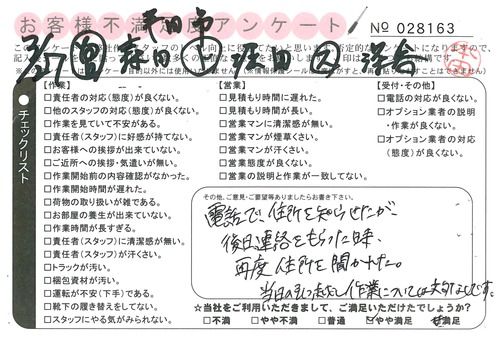 お客様不満足度アンケート
No 028163
チェックリスト
【作業】
□責任者の対応（態度）が良くない。
□他のスタッフの対応（態度）が良くない。
□作業を見ていて不安がある。
□責任者（スタッフ）に好感が持てない。
□お客様への挨拶が出来ていない。
□ご近所への挨拶・気遣いが無い。
□作業開始前の内容確認がなかった。
□作業開始時間が遅れた。
□荷物の取り扱いが雑である。
□お部屋の養生が出来ていない。
□作業時間が長すぎる。
□責任者（スタッフ）に清潔感が無い。
□責任者（スタッフ）が汗くさい。
□トラックが汚い。
□梱包資材が汚い。
□運転が不安（下手）である。
□靴下の履き替えをしてない。
□スタッフにやる気がみられない。
【営業】
□見積もり時間に遅れた。
□見積もり時間が長い。
□営業マンに清潔感が無い。
□営業マンが煙草くさい。
□営業マンが汗くさい。
□営業態度が良くない。
□営業の説明と作業が一致してない。
【受付・その他】
□電話の対応が良くない。
□オプション業者の説明
・作業が良くない。
□オプション業者の対応
（態度）が良くない。
その他、ご意見・ご要望等ありましたらお書き下さい。
電話で、住所を知らせたが、
後日連絡をもらった時、
再度住所を聞かれた。
☆当社をご利用いただきまして、ご満足いただけたでしょうか？
□不満 □やや不満 □普通 □やや満足 □満足